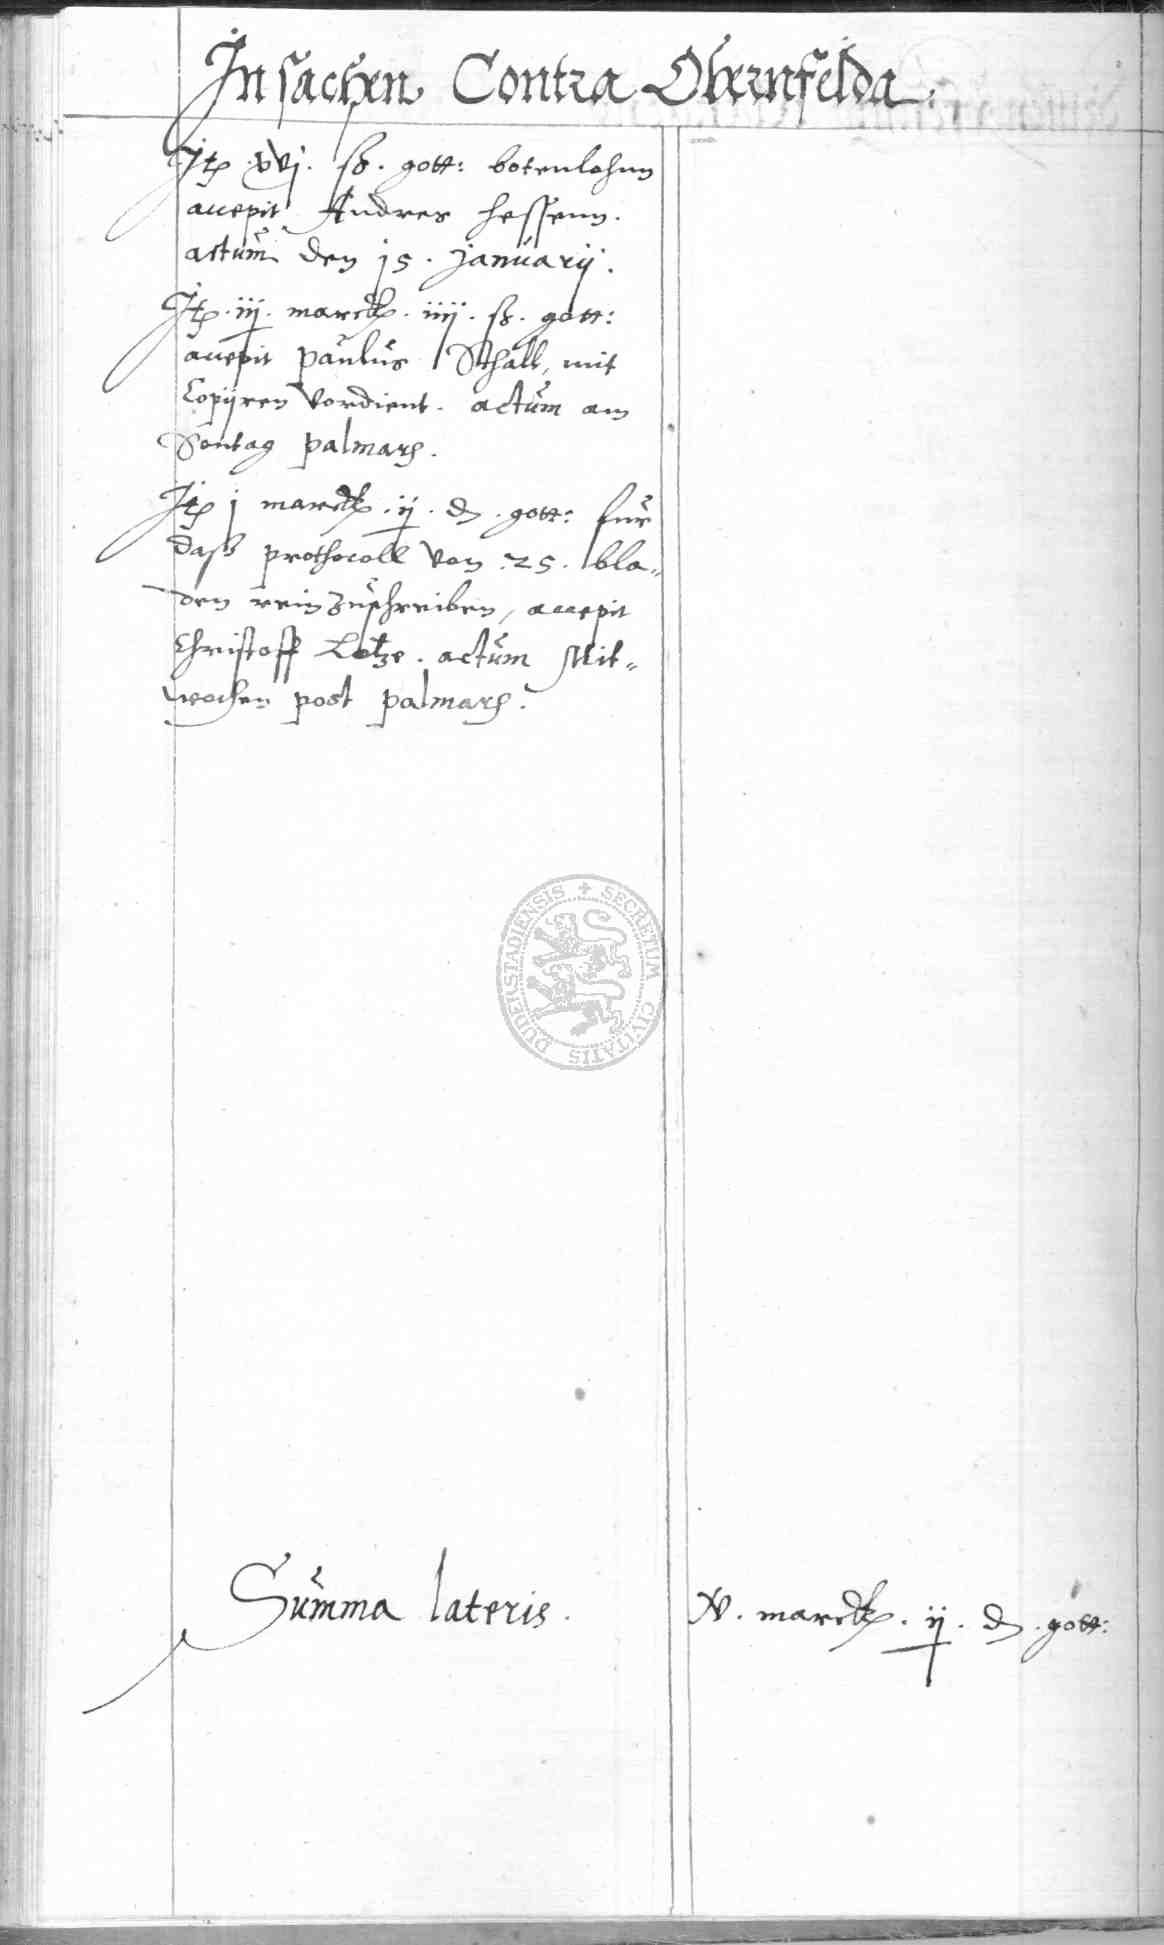 In sachen Contra Obernfelda.
Jtem .xvj. sß. gott: botenlohnn
accepit Andres Hessenn.
actum den 15. Januarij.
Jtem .iij. marck .iiij. sß. gott:
accepit Paulus Schall, mit
Copijren vordient. actum am
Sontag palmarum.
Jtem j marck .ij. d. gott: fur
daß prothocoll von 25. bla„
den rein zuschreiben, accepit
Christoff Lotze. actum Mit„
wochen post palmarum.
DUDERSTADIENSIS + SECRETUM CIVITATIS
Summa lateris.
V. marck .ij. d. gott: